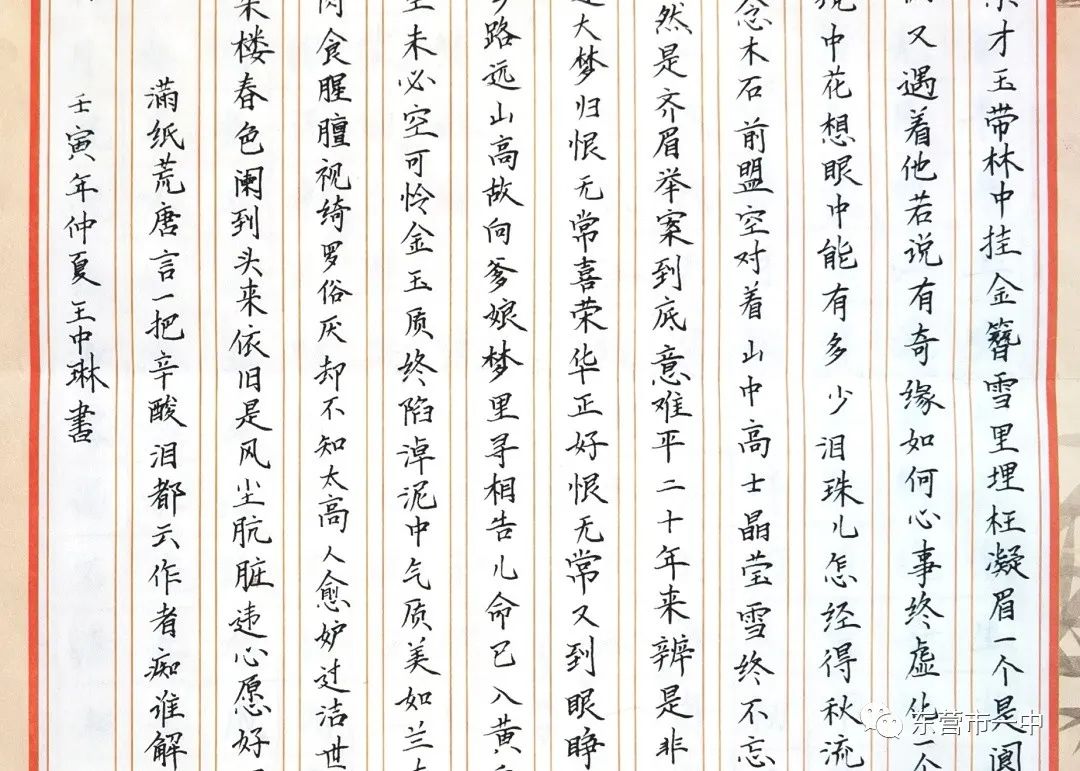 才玉带林中挂金簪雪里埋枉凝眉一个是阆
又遇着他若说有奇缘如何心事终虚化一个
镜中花想眼中能有多少泪珠儿怎经得秋流
念木石前盟空对着山中高士晶莹雪终不忘
然是齐眉举案到底意难平二十年来辨是非
大梦归恨无常喜荣华正好恨无常又到眼睁
路远山高故向爹娘梦里寻相告儿命已入黄
未必空可怜金玉质终陷淖泥中气质美如兰
肉食腥膻视绮罗俗厌却不知太高人愈妒过洁世
楼春色阑到头来依旧是风尘肮脏违心愿好
满纸荒唐言一把辛酸泪都云作者痴谁解
壬寅年仲夏王中琳書
东营市一中